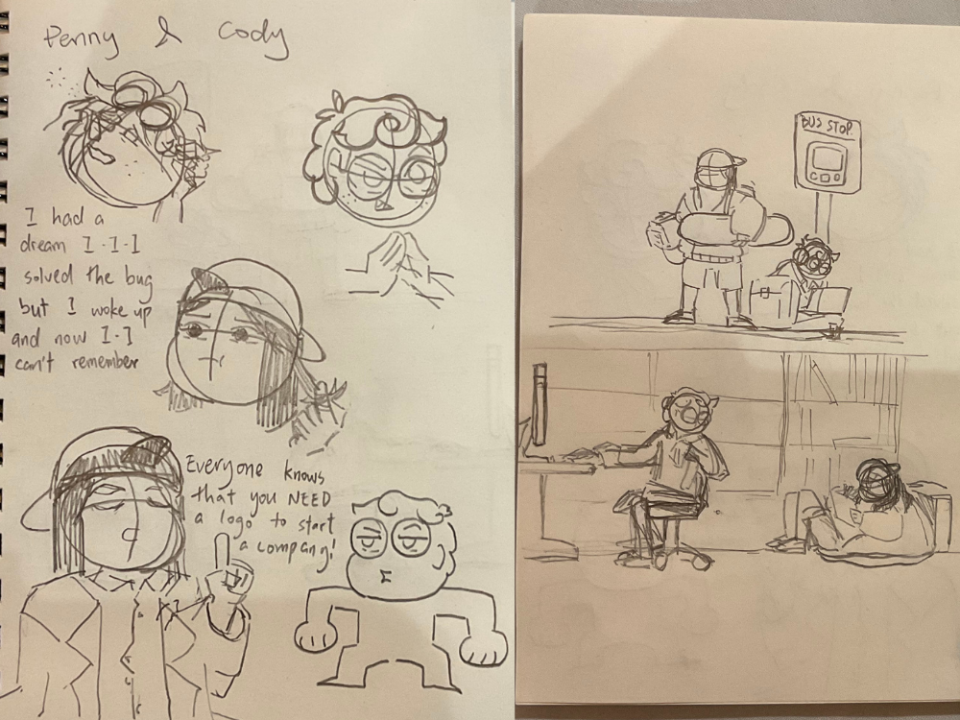 Penny & Cody
I had a
dream I-I-I
solved the bug
but I woke up
and now I-I
can't remember
Everyone knows
that you NEED
a logo to start
a company!
BUS STOP